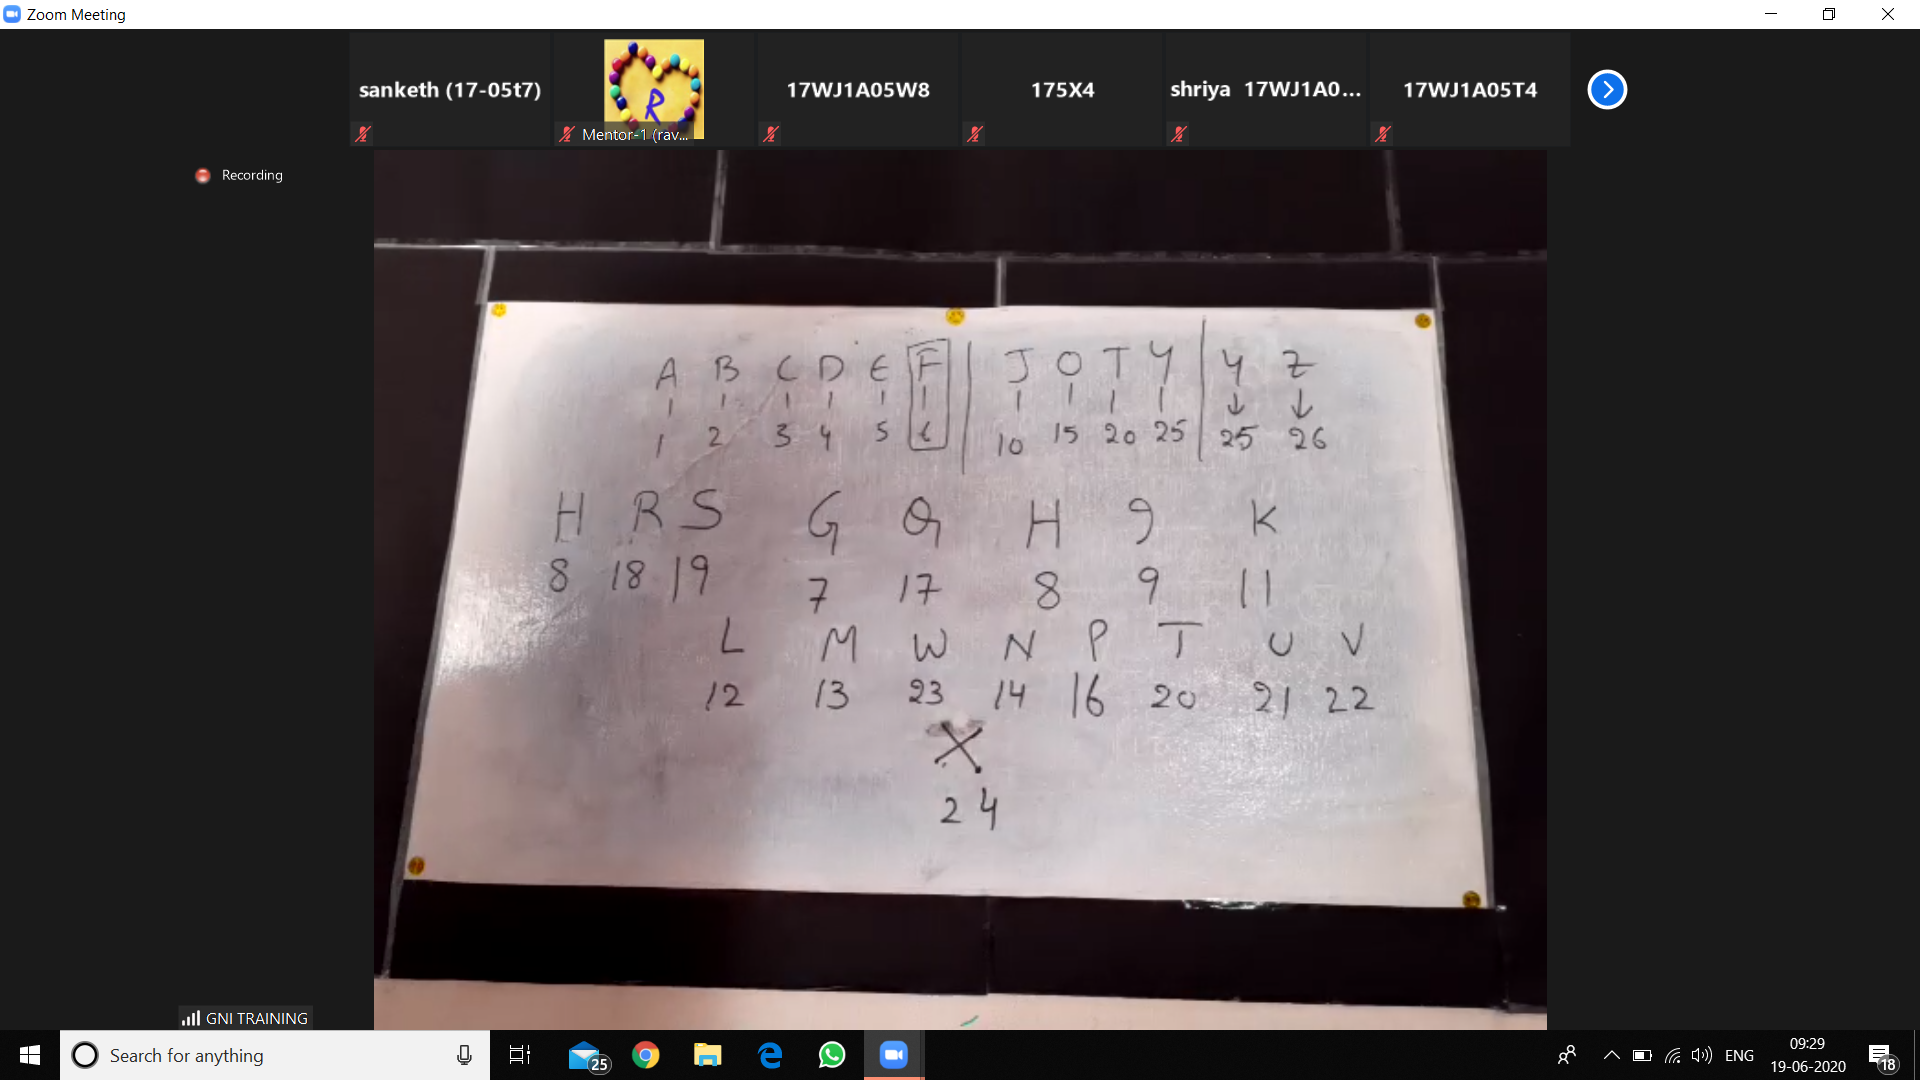 Zoom Meeting
sanketh (17-05t7)
Mentor-1 (rav...
17WJ1A05W8
175X4
shriya 17WJ1A0...
17WJ1A05T4
R
Recording
A B C D E F J O T Y Y Z
1 2 3 4 5 6 10 15 20 25 25 26
H R S G Q H 9 K
8 18 19 7 17 8 9 11
L M W N P T U V
12 13 23 14 16 20 21 22
X
24
GNI TRAINING
Search for anything
25
ENG
09:29
19-06-2020
18